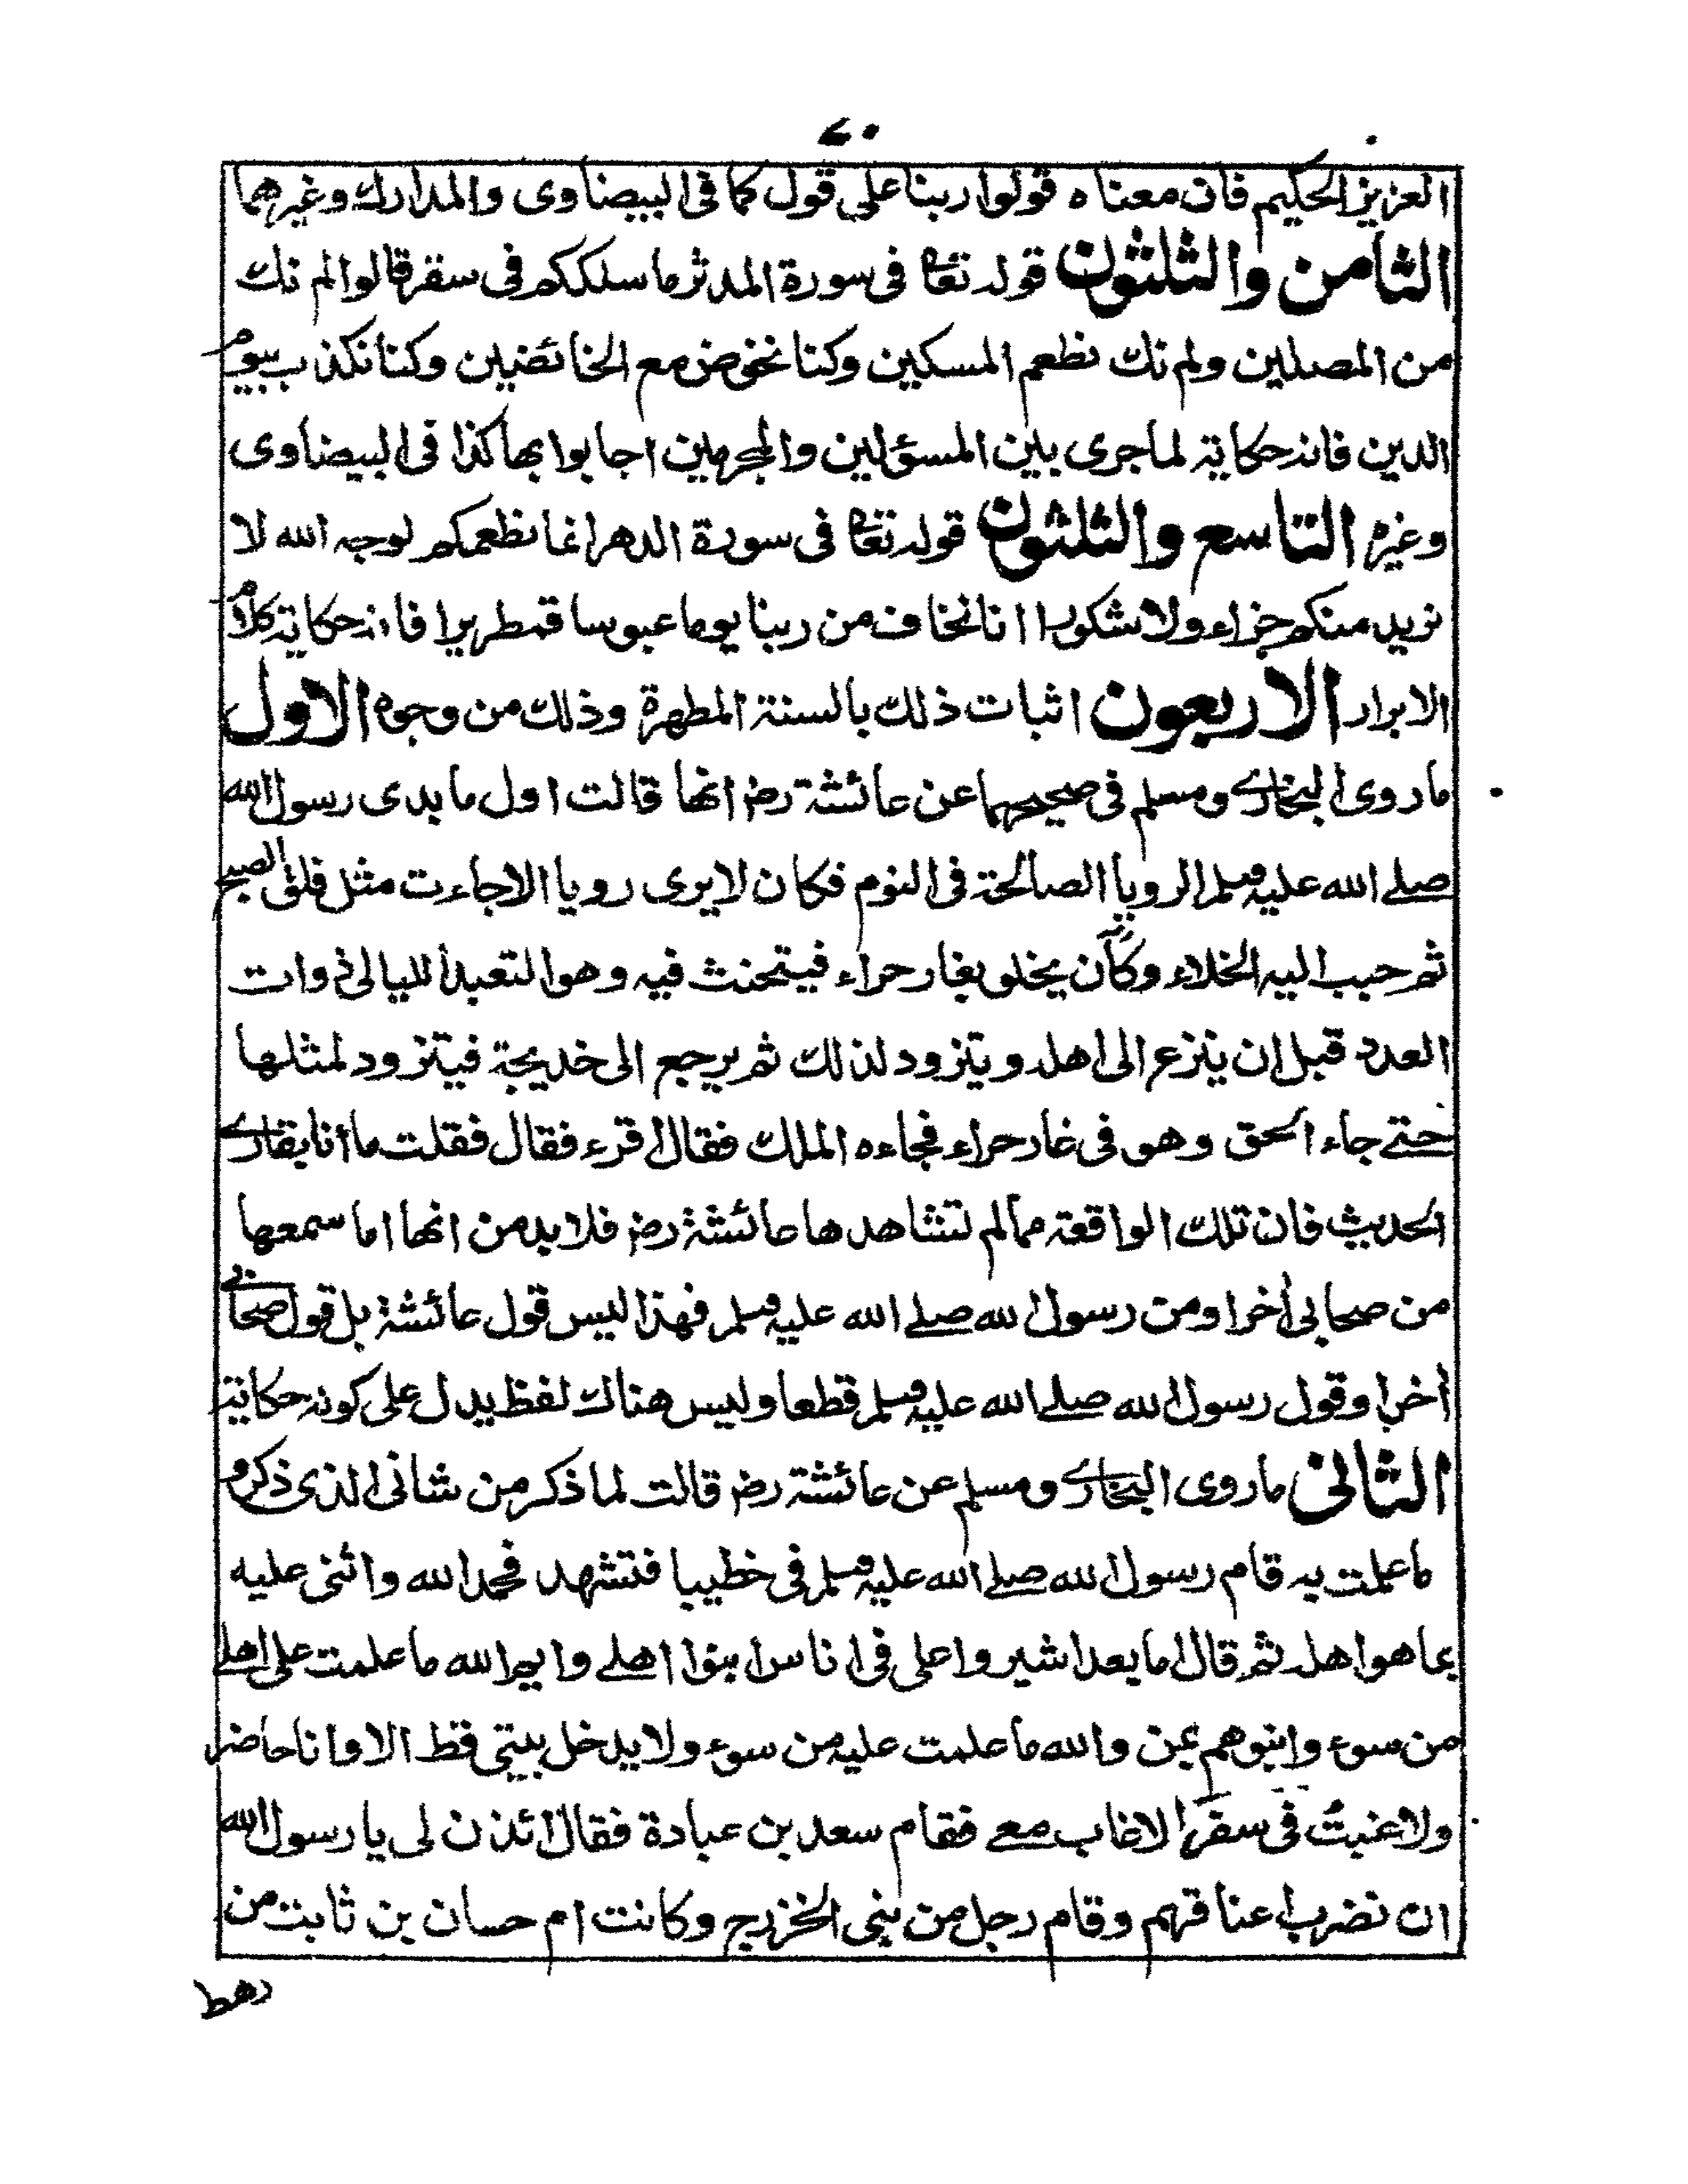 ٧٠
العزيز الحكيم فان معناه قولوا ربنا على قول كما فى البيضاوى والمدارك وغيرهما
الثامن والثلثون قوله تعالى فى سورة المدثر ما سلككم فى سقر قالوا لم نك
من المصلين ولم نك نطعم المسكين وكنا نخوض مع الخائضين وكنا نكذب بيوم
الدين فانه حكاية لما جرى بين المسؤلين والمجرمين اجابوا بها كذا فى البيضاوى
وغيره التاسع والثلثون قوله تعالى فى سورة الدهر انما نطعمكم لوجه الله لا
نريد منكم جزاء ولا شكورا انا نخاف من ربنا يوما عبوسا قمطريرا فانه حكاية كلام
الابرار الاربعون اثبات ذلك بالسنة المطهرة وذلك من وجوه الاول
ما روى البخارى ومسلم فى صحيحيهما عن عائشة رض انها قالت اول ما بدى رسول الله
صلے الله عليه وسلم الرويا الصالحة فى النوم فكان لا يرى رويا الا جاءت مثل فلق الصبح
ثم حبب اليه الخلاء وكان يخلو بغار حراء فيتحنث فيه وهو التعبد الليالى ذوات
العدد قبل ان ينزع الى اهله ويتزود لذلك ثم يرجع الى خديجة فيتزود لمثلها
حتے جاء الحق وهو فى غار حراء فجاءه الملك فقال اقرء فقال فقلت ما أنا بقارے
الحديث فان تلك الواقعة مما لم تشاهدها عائشة رض فلا بد من انها اما سمعها
من صحابى أخر او من رسول الله صلے الله عليه وسلم فهذا ليس قول عائشة بل قول صحابے
أخر او قول رسول الله صلے الله عليه وسلم قطعا وليس هناك لفظ يدل على كونه حكاية
الثانى ما روى البخارے ومسلم عن عائشة رض قالت لما ذكر من شانى الذى ذكر و
ما علمت به قام رسول الله صلے الله عليه وسلم فى خطيبا فتشهد فحمد الله واثنى عليه
بما هو اهله ثم قال اما بعد اشيروا على فى اناس ابنوا اهلے وايم الله ما علمت على اهلے
من سوء وابنوهم بمن والله ما علمت عليه من سوء ولا يدخل بيتى قط الا وانا حاضر
ولا غبت فى سفر الا غاب معے فقام سعد بن عبادة فقال ائذن لى يا رسول الله
ان نضرب اعناقهم وقام رجل من بنى الخزرج وكانت ام حسان بن ثابت من
رهط